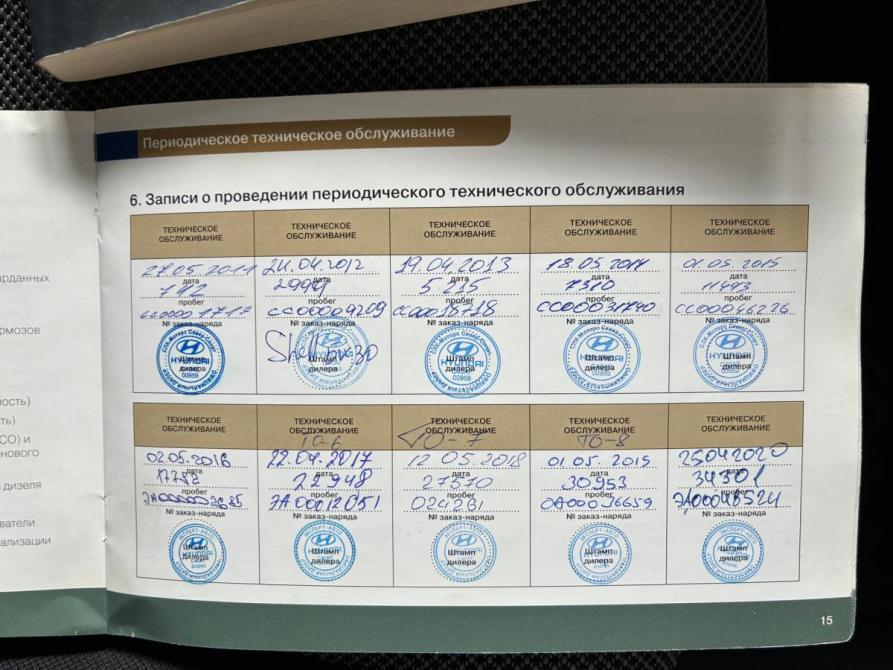 Периодическое техническое обслуживание
6. Записи о проведении периодического технического обслуживания
ТЕХНИЧЕСКОЕ ОБСЛУЖИВАНИЕ
27.05.2011
дата
742
пробег
№ заказ-наряда
HYUNDAI
Штамп
дилера
ТЕХНИЧЕСКОЕ ОБСЛУЖИВАНИЕ
24.04.2012
дата
пробег
СС00009209
№ заказ-наряда
Shell
Штамп
дилера
ТЕХНИЧЕСКОЕ ОБСЛУЖИВАНИЕ
19.04.2013
дата
5215
пробег
№ заказ-наряда
HYUNDAI
Штамп
дилера
00959
ТЕХНИЧЕСКОЕ ОБСЛУЖИВАНИЕ
18.05.2014
дата
7310
пробег
№ заказ-наряда
HYUNDAI
Штамп
дилера
00959
ТЕХНИЧЕСКОЕ ОБСЛУЖИВАНИЕ
01.05.2015
дата
пробег
№ заказ-наряда
HYUNDAI
Штамп
дилера
00959
ТЕХНИЧЕСКОЕ ОБСЛУЖИВАНИЕ
02.05.2016
дата
пробег
№ заказ-наряда
Штамп
HYUNDAI
дилера
ТЕХНИЧЕСКОЕ ОБСЛУЖИВАНИЕ
ТО-6
22.04.2017
дата
22948
пробег
ЭА00012051
№ заказ-наряда
Штамп
дилера
ТЕХНИЧЕСКОЕ ОБСЛУЖИВАНИЕ
ТО-7
12 05.2018
дата
27570
пробег
№ заказ-наряда
Штамп
дилера
ТЕХНИЧЕСКОЕ ОБСЛУЖИВАНИЕ
ТО-8
01.05.2019
дата
30953
пробег
№ заказ-наряда
Штамп
дилера
ТЕХНИЧЕСКОЕ ОБСЛУЖИВАНИЕ
25042020
дата
34301
пробег
№ заказ-наряда
Штамп
дилера
15
рмозов
ность)
СО) и
нового
дизеля
ватели
ализации